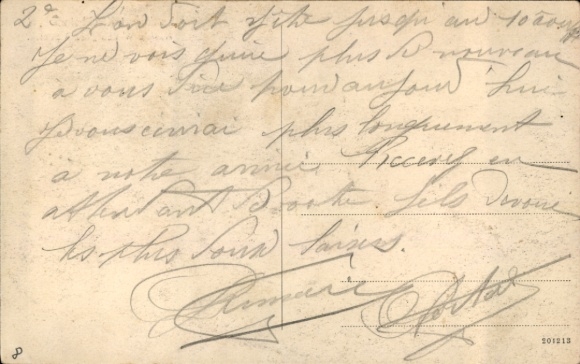 2e L'on doit y être jusqu'au 10 août
Je ne vois guère plus de nouveau
a vous dire pour aujourd'hui
Je vous écrirai plus longuement
a notre arrivée Recevez en
attendant de votre fils dévoué
les plus doux baisers.
201213
8